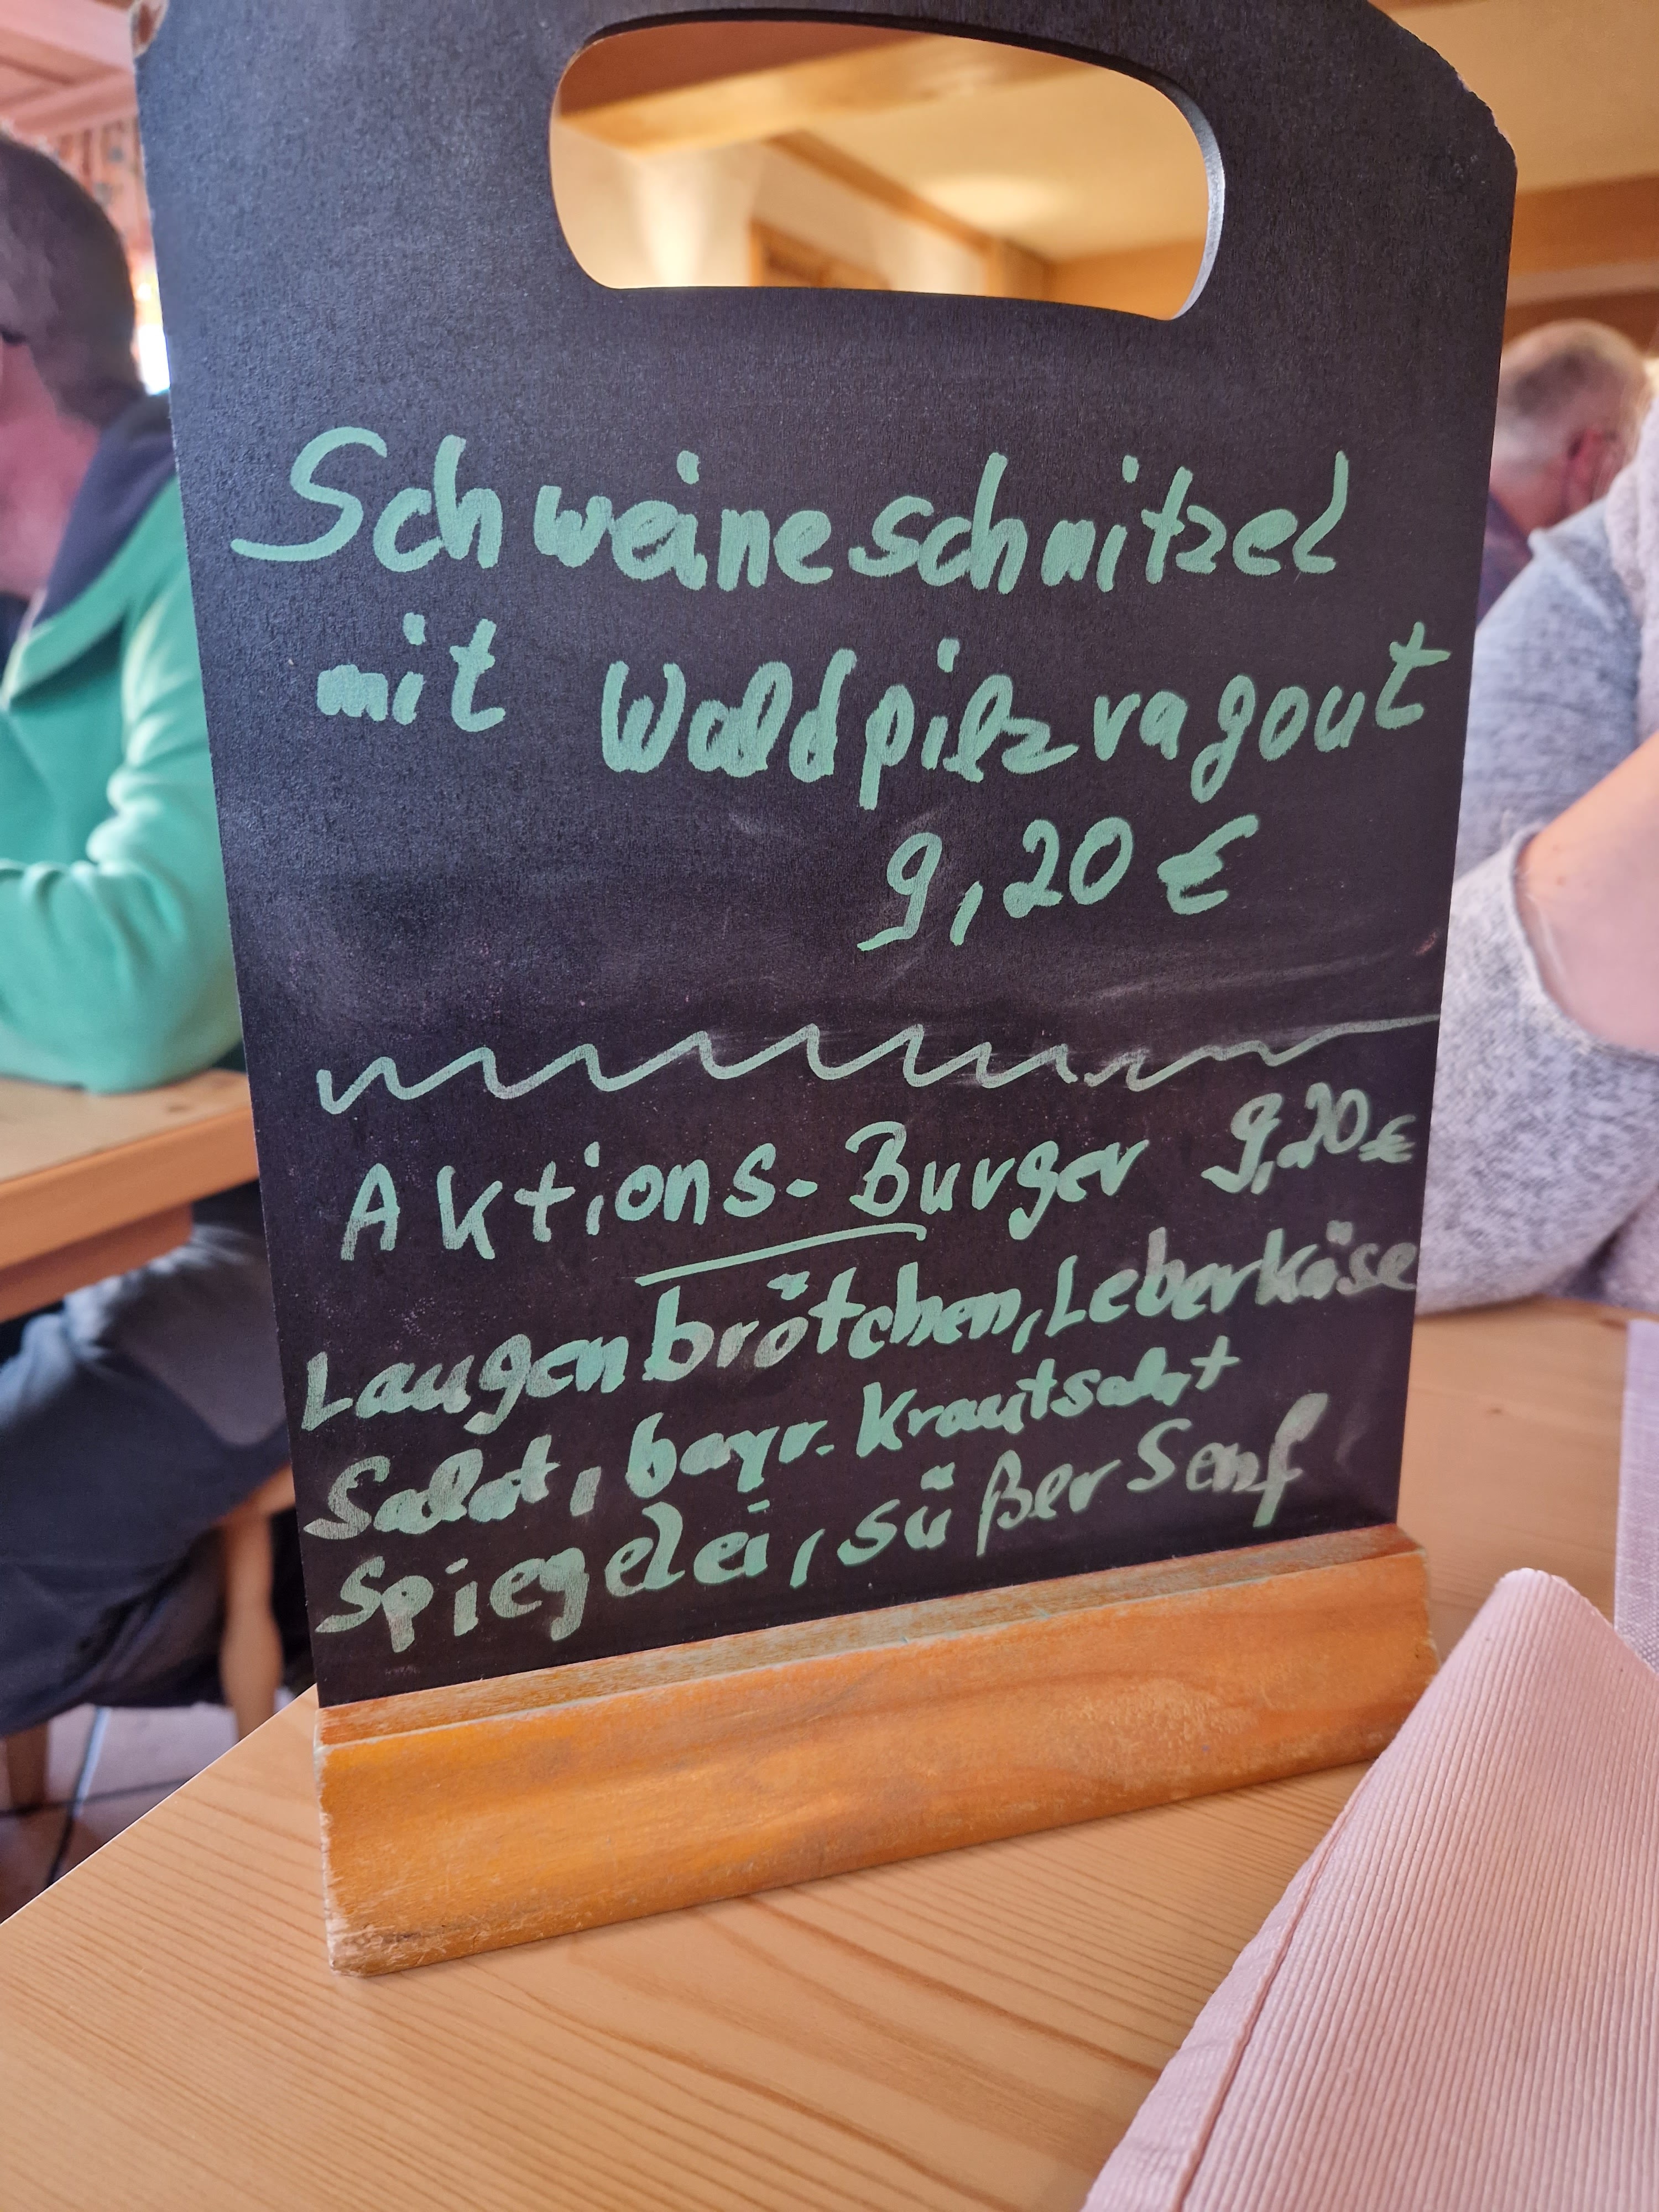 Schweineschnitzel
mit Waldpilzragout
9,20 €
Aktions-Burger 9,20 €
Laugenbrötchen, Leberkäse
Salat, bayr. Krautsalat
Spiegelei, süßer Senf